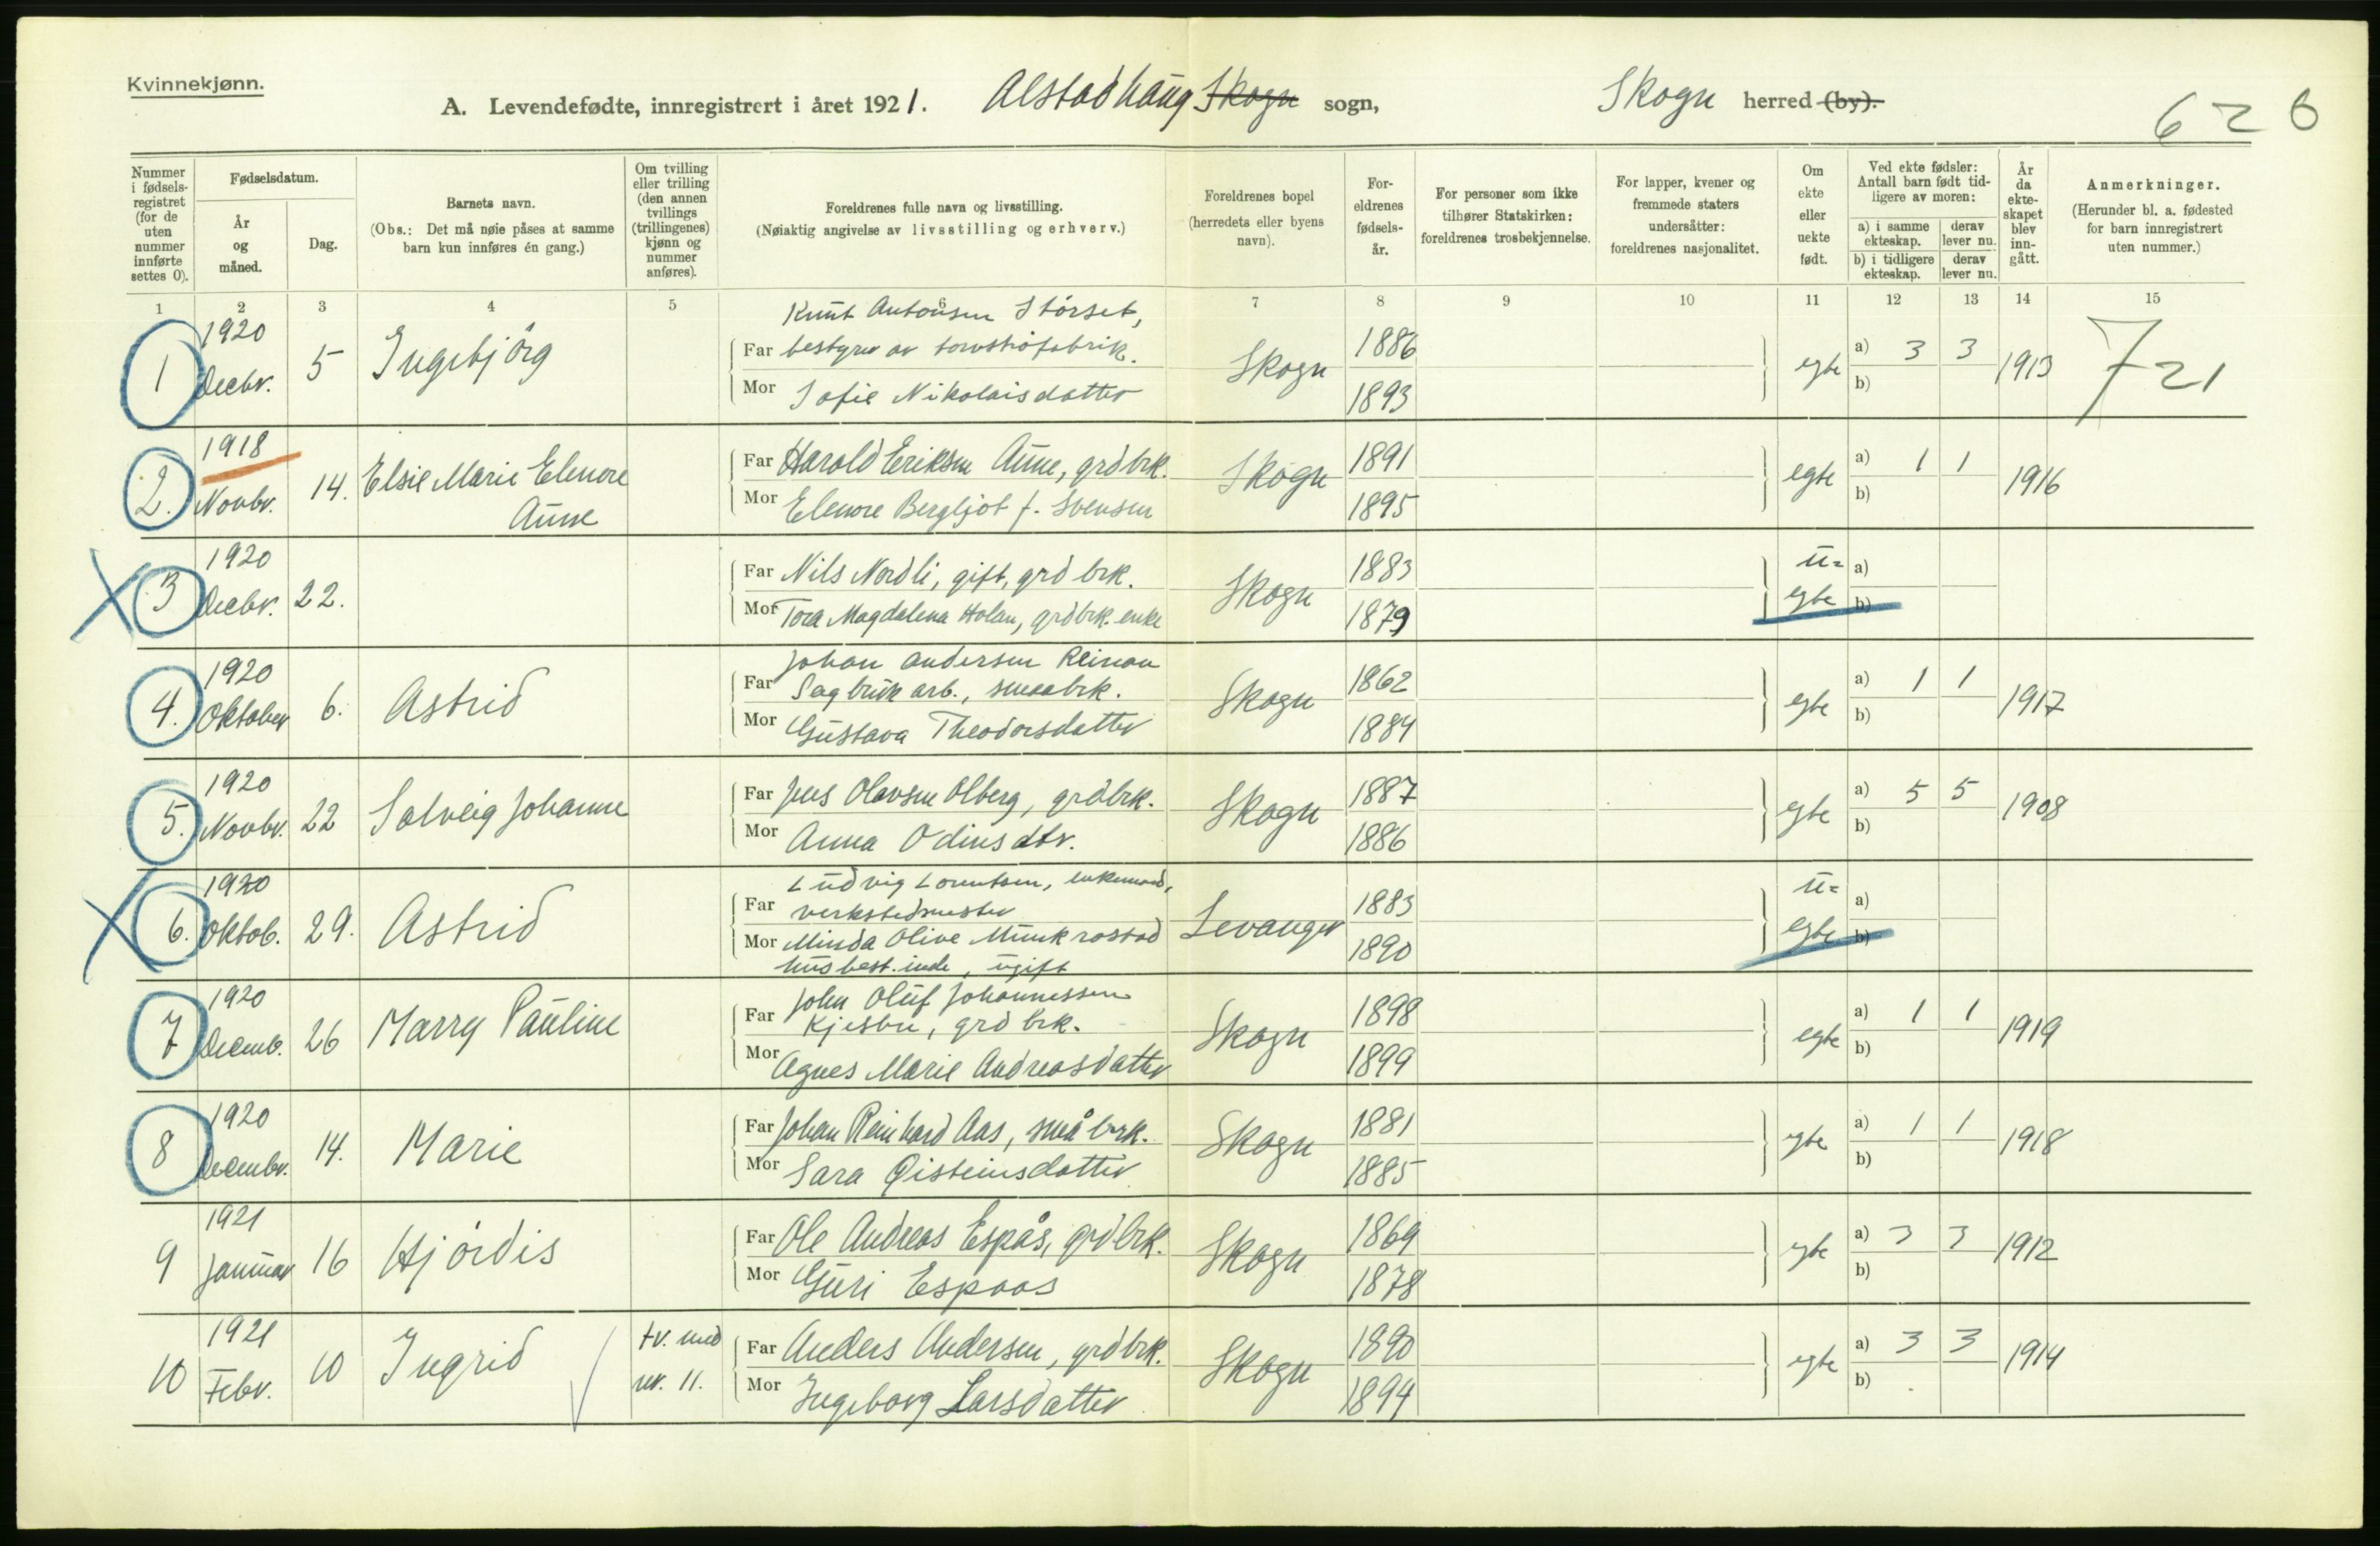 Kvinnekjønn.
A. Levendefødte, innregistrert i året 1921. Alstadhaug Skogn sogn, Skogn herred (by).
62 6
Nummer i fødsels-registret (for de uten nummer innførte settes 0).
Fødselsdatum.
År og måned.
Dag.
Barnets navn.
(Obs.: Det må nøie påses at samme barn kun innføres én gang.)
Om tvilling eller trilling (den annen tvillings (trillingenes) kjønn og nummer anføres).
Foreldrenes fulle navn og livsstilling.
(Nøiaktig angivelse av livsstilling og erhverv.)
Foreldrenes bopel (herredets eller byens navn).
For-eldrenes fødsels-år.
For personer som ikke tilhører Statskirken: foreldrenes trosbekjennelse.
For lapper, kvener og fremmede staters undersåtter: foreldrenes nasjonalitet.
Om ekte eller uekte født.
Ved ekte fødsler: Antall barn født tid-ligere av moren:
a) i samme ekteskap. derav lever nu.
b) i tidligere ekteskap. derav lever nu.
År da ekte-skapet blev inn-gått.
Anmerkninger.
(Herunder bl. a. fødested for barn innregistrert uten nummer.)
1 2 3 4 5 6 7 8 9 10 11 12 13 14 15
1 1920 Decbr. 5 Ingebjörg
Knut Antonsen Störset,
Far bestyrer av torvströfabrik. Skogn 1886 egte a) 3 3 1913 7 21
Mor Sofie Nikolaisdatter 1893 b)
2. 1918 Novbr. 14. Elsie Marie Elenore Aune
Far Harold Eriksen Aune, grdbrk. Skogn 1891 egte a) 1 1 1916
Mor Elenore Bergljot f. Svensen 1895 b)
3 1920 Decbr. 22.
Far Nils Nordli, gift, grdbrk. Skogn 1883 u= egte a)
Mor Tora Magdalena Holan, grdbrk. enke 1879 b)
4. 1920 Oktober 6. Astrid
Johan Andersen Reinan
Far Sagbruk arb., smaabrk. Skogn 1862 egte a) 1 1 1917
Mor Gustava Theodorsdatter 1884 b)
5. 1920 Novbr. 22 Solveig Johanne
Far Jens Olavsen Olberg, grdbrk. Skogn 1887 egte a) 5 5 1908
Mor Anna Odinsdtr. 1886 b)
6. 1920 Oktob. 29. Astrid
Ludvig Lorentsen, enkemand,
Far verkstedmester Levanger 1883 u= egte a)
Mor Minda Olive Munkrostad 1890 b)
husbest.inde, ugift
7 1920 Decemb. 26 Marry Pauline
John Oluf Johannessen
Far Kjesbu, grdbrk. Skogn 1898 egte a) 1 1 1919
Mor Agnes Marie Andreasdatter 1899 b)
8 1920 Decembr. 14. Marie
Far Johan Reinhard Aas, småbrk. Skogn 1881 egte a) 1 1 1918
Mor Sara Øisteinsdatter 1885 b)
9 1921 Januar 16 Hjördis
Far Ole Andreas Espås, grdbrk. Skogn 1869 egte a) 3 3 1912
Mor Guri Espaas 1878 b)
10 1921 Febr. 10 Ingrid tv. med nr. 11.
Far Anders Andersen, grdbrk. Skogn 1890 egte a) 3 3 1914
Mor Ingeborg Larsdatter 1894 b)